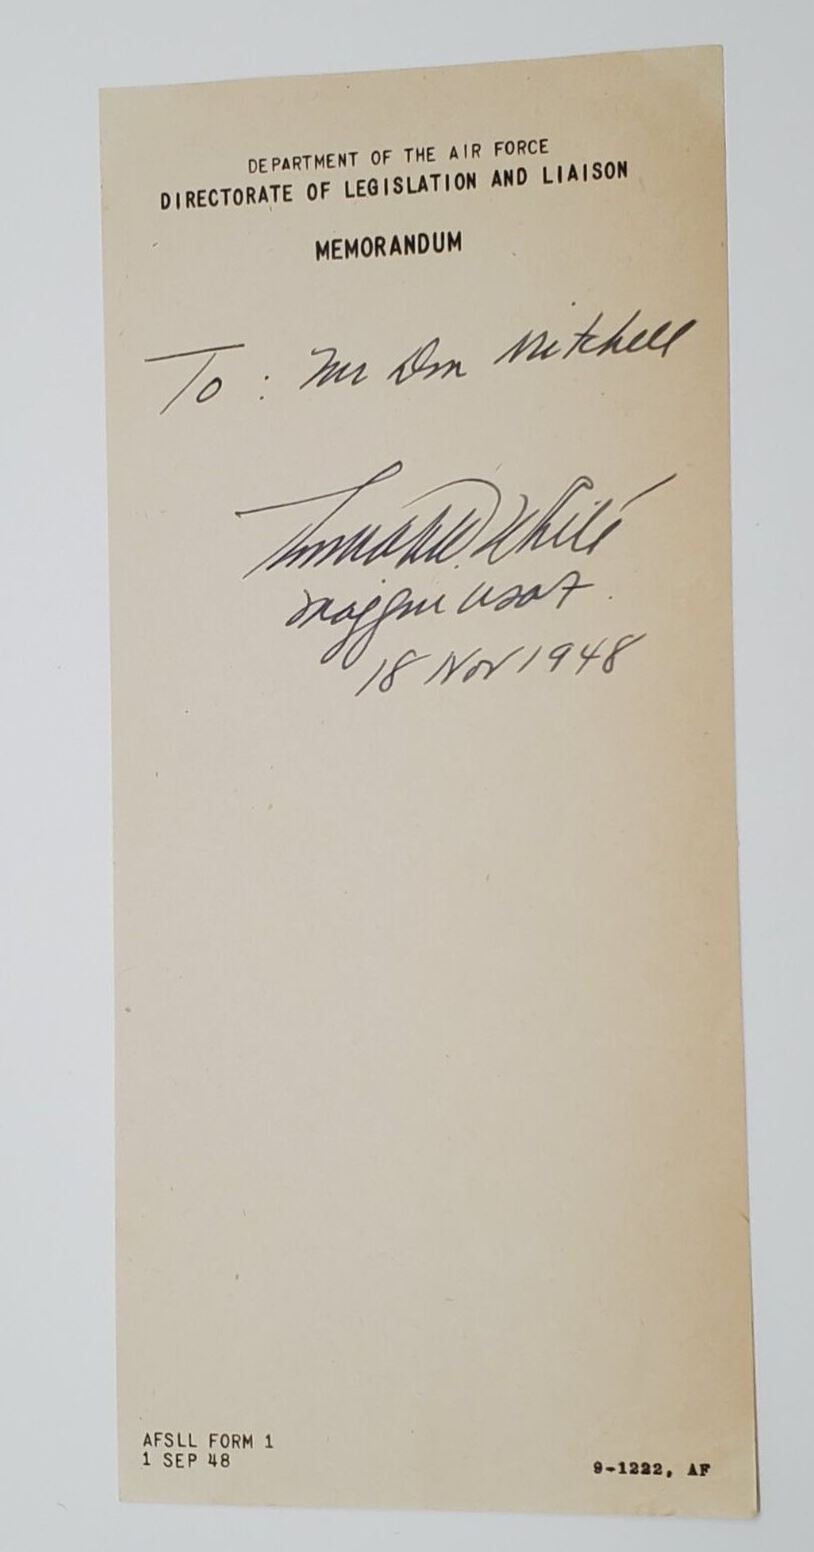 DEPARTMENT OF THE AIR FORCE
DIRECTORATE OF LEGISLATION AND LIAISON
MEMORANDUM
To : Mr Don Mitchell
Thomas D. White
Maj Gen USAF.
18 Nov 1948
AFSLL FORM 1
1 SEP 48
9-1222, AF